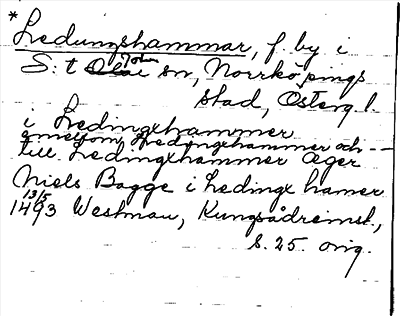 * Ledungshammar, f. by i
S:t Olai John sn, Norrköpings
stad, Österg. l.
i Ledingxhammer
emellom Ledingxhammer och - -
till Ledingxhammer æger
Niels Bagge i Ledingx hamer
13/5
1493 Westmau, Kungsådreinst.,
s. 25. orig.